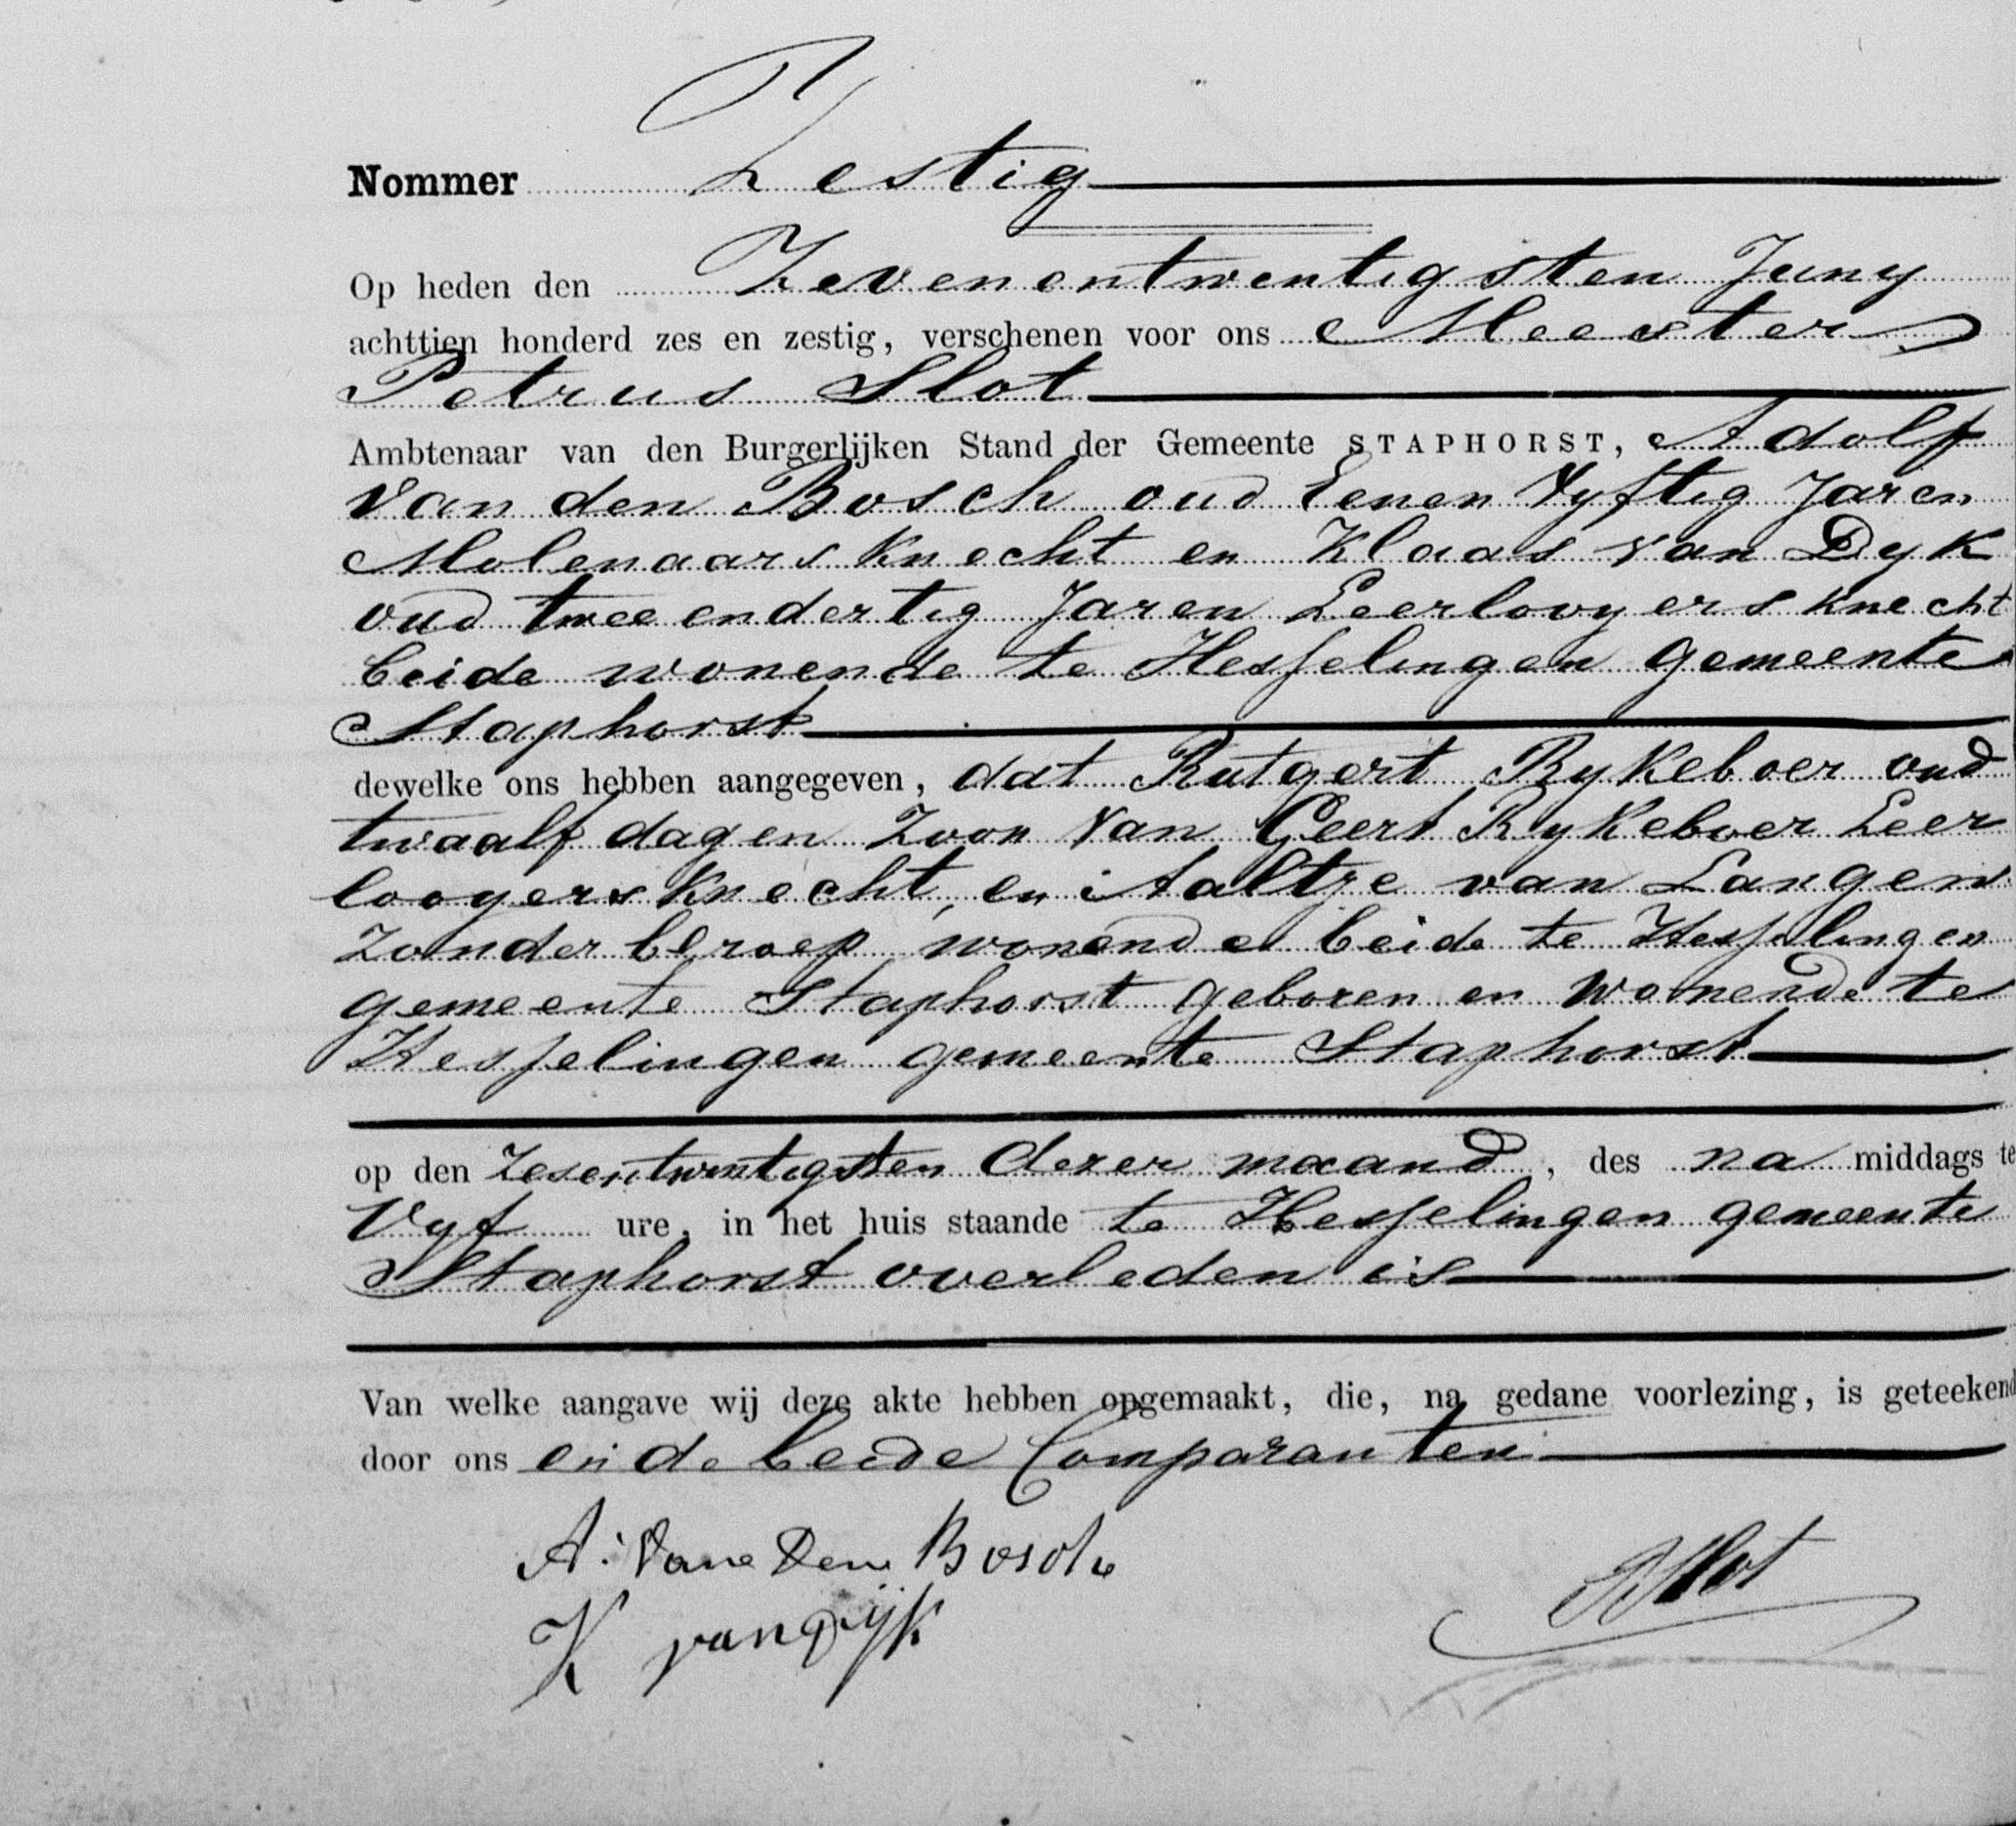 Nommer Zestig
Op heden den Zevenentwentigsten Juny
achttien honderd zes en zestig, verschenen voor ons Meester
Petrus Slot
Ambtenaar van den Burgerlijken Stand der Gemeente STAPHORST, Adolf
van den Bosch oud Eenen Vyftig Jaren
Molenaars Knecht en Klaas van Dyk
oud twee endertig Jaren Leerlooyers knecht
beide wonende te Hesselingen gemeente
Staphorst
dewelke ons hebben aangegeven, dat Rutgert Rykeboer oud
twaalf dagen Zoon van Geert Rykeboer Leer
looyers Knecht, en Aaltje van Langen
Zonder beroep wonende beide te Hesselingen
gemeente Staphorst geboren en wonende te
Hesselingen gemeente Staphorst
op den Zesentwentigsten dezer maand, des na middags te
Vyf ure, in het huis staande te Hesselingen gemeente
Staphorst overleden is
Van welke aangave wij deze akte hebben opgemaakt, die, na gedane voorlezing, is geteekend
door ons en de beide Comparanten
A. van den Bosch
K van Dijk
PSlot